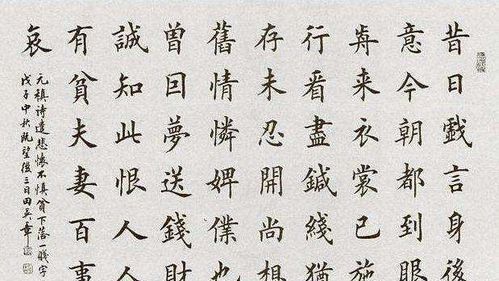 昔日戲言身後
意今朝都到眼
歬来衣裳已施
行看盡鍼綫猶
存未忍開尚相
舊情憐婢僕也
曾囙夢送錢財
誠知此恨人人
有貧夫妻百事
哀
元稹诗遣悲懷不慎貧下落一賤字
戊子中秋既望後三日田英章